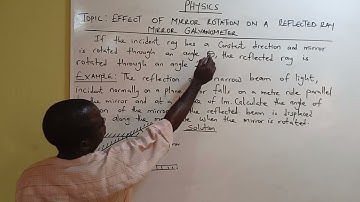 PHYSICS
TOPIC: EFFECT OF MIRROR ROTATION ON A REFLECTED RAY
MIRROR GALVANOMETER
If the incident ray has a constant direction and mirror
is rotated through an angle the reflected ray is
rotated through an angle
EXAMPLE: The reflection of a narrow beam of light,
incident normally on a plane falls on a metre rule parallel
the mirror and at a of 1m. Calculate the angle of
of the mirror the reflected beam is displaced
along the when the mirror is rotated.
Solution